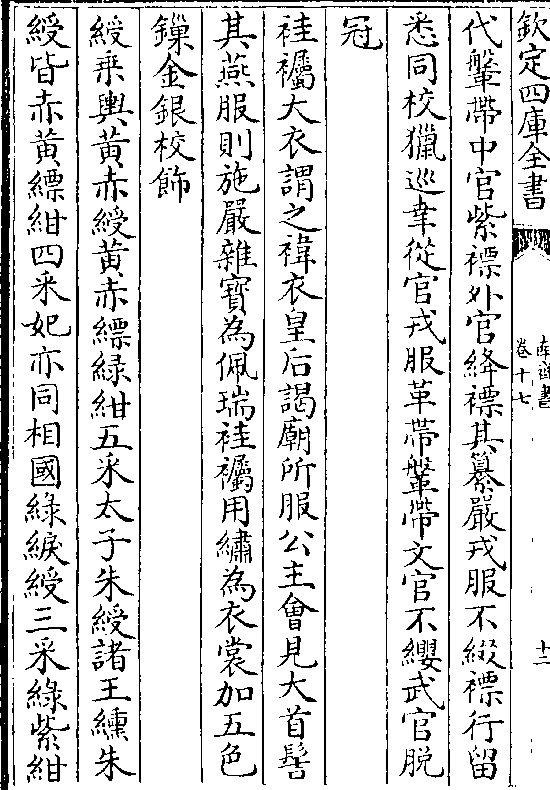 欽定四庫全書
南齊書
卷十七
十二
代鞶帶中官紫褾外官絳褾其纂嚴戎服不綴褾行留
悉同校獵巡幸從官戎服革帶鞶帶文官不纓武官脱
冠
袿䙱大衣謂之褘衣皇后謁廟所服公主會見大首髻
其燕服則施嚴雜寶為佩瑞袿䙱用繡為衣裳加五色
鏁金銀校飾
綬乗輿黄赤綬黄赤縹緑紺五采太子朱綬諸王纁朱
綬皆赤黄縹紺四采妃亦同相國緑綟綬三采緑紫紺